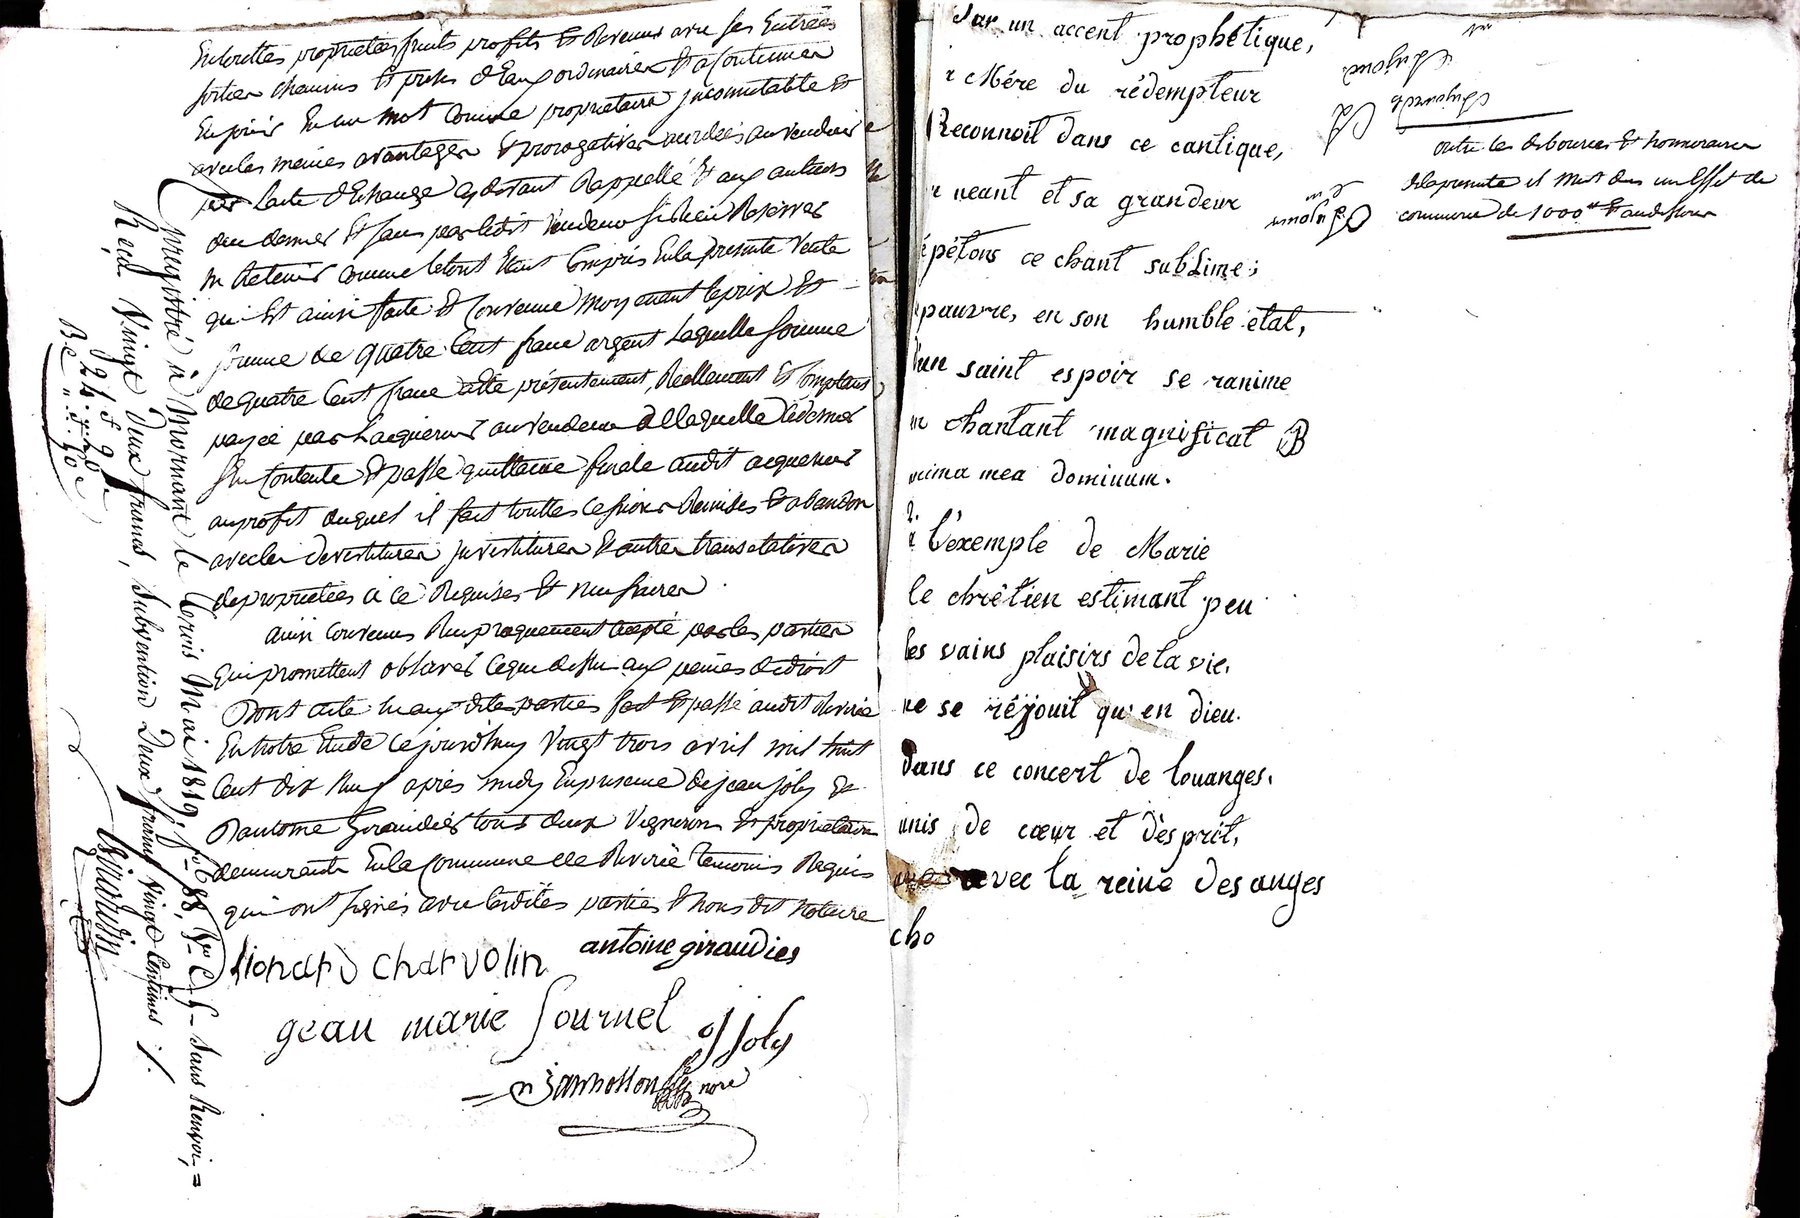 proprietées fruits profits Et Revenus avec ses Entrées
sorties chemins Et prises d'Eaux ordinaires Et accoutumées
En jouir En un mot comme proprietaire jncomutable Et
avec les mêmes avantages Et prorogatives au vendeur
par Lacte d'Echange cydevant Rappellé Et aux auteurs
du dernier Et sans par ledit Vendeur Reserver
ny Retenir comme le tout Etant Compris En la presente Vente
qui Est ainsi faite Et Convenue moyenant le prix Et
somme de quatre Cent franc argent Laquelle somme
de quatre Cent franc a été présentement, Réellement Et Comptant
payée par Lacquereur au vendeur de laquelle le dernier
s'En Contente Et passe quittance finale audit acquereur
au profit duquel il fait touttes cessions Remises Et abandon
avec les devestitures jnvestitures Et autres translatives
de proprietées à ce Requises Et necessaires
ainsi convenus Reciproquement accepté par les parties
qui promettent observer ce que dessus aux peines de droit
Dont acte aux dites parties fait Et passé audit Riverie
En notre Etude Ce jourdhuy Vingt trois avril mil huit
Cent dix neuf après midy En presence de jean joly Et
Dantoine Giraudier tous deux Vignerons Et proprietaires
demeurants En la Commune de Riverie temoins Requis
qui ont signés avec lesdites parties Et nous dit Notaire
Lionard charvolin antoine giraudier
gean marie fournel jj joly
nore
Enregistré à Mornant le trois Mai 1819, fo 68, Vo C. 5 - sans Renvoi,=
Reçu Vingt Deux francs, subvention Deux francs vingt Centimes ./.
Par un accent prophétique,
Mére du rédempteur
Reconnoit dans ce cantique,
neant et sa grandeur
épétons ce chant sublime;
pauvre, en son humble état,
un saint espoir se ranime
chantant magnificat
anima mea dominum.
2.
l'éxemple de Marie
le chrétien estimant peu
les vains plaisirs de la vie,
ne se réjouit qu'en dieu.
Dans ce concert de louanges,
unis de cœur et d'èsprit,
avec la reine des anges
cho
outre les debources Et honnoraires
de la presente il m'est dus un Effet de
commune de 1000